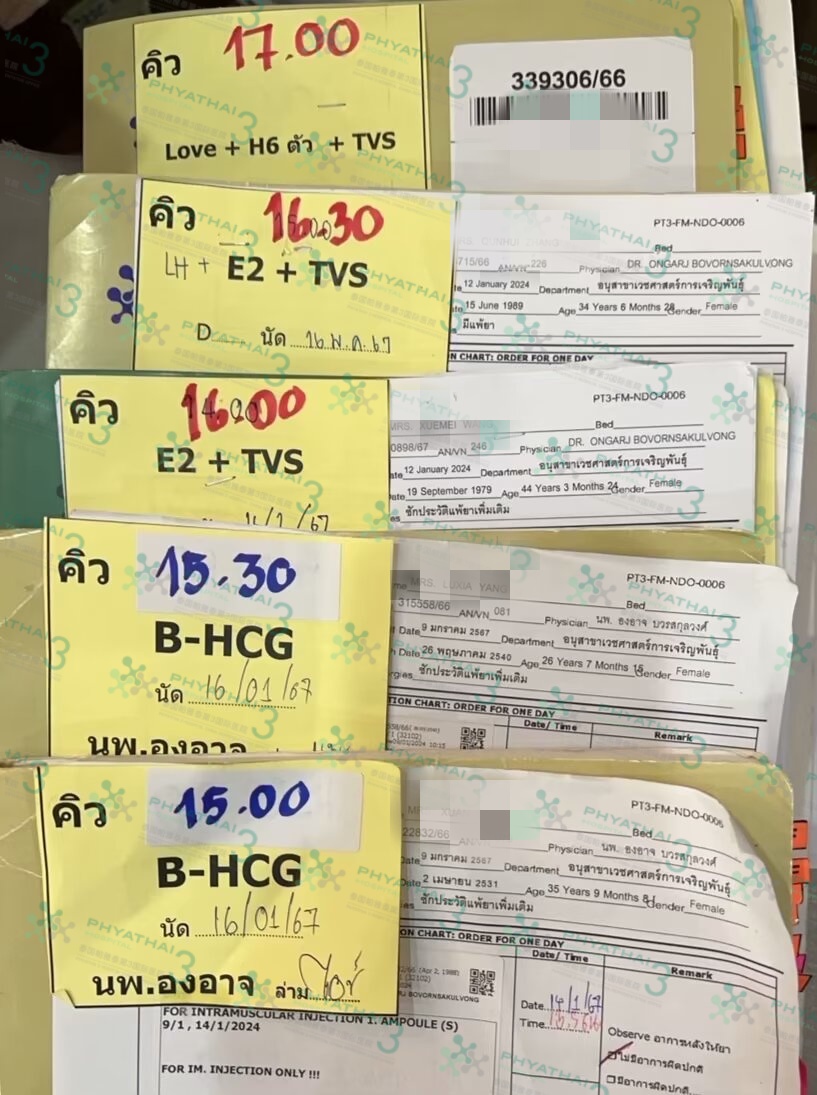 คิว 17.00
Love + H6 ตัว + TVS
339306/66
คิว 16.30
LH + E2 + TVS
D...... นัด 16 พ.ค. 67
PT3-FM-NDO-0006
Bed
715/66 AN/VN 226 Physician DR. ONGARJ BOVORNSAKULVONG
12 January 2024 Department อนุสาขาเวชศาสตร์การเจริญพันธุ์
15 June 1989 Age 34 Years 6 Months 28 Gender Female
มีแพ้ยา
N CHART: ORDER FOR ONE DAY
คิว 16.00
E2 + TVS
PT3-FM-NDO-0006
MRS. XUEMEI
Bed
0898/67 AN/VN 246 Physician DR. ONGARJ BOVORNSAKULVONG
ate 12 January 2024 Department อนุสาขาเวชศาสตร์การเจริญพันธุ์
ate 19 September 1979 Age 44 Years 3 Months 24 Gender Female
es ซักประวัติแพ้ยาเพิ่มเติม
คิว 15.30
B-HCG
นัด 16/01/67
นพ.องอาจ
PT3-FM-NDO-0006
me MRS. LUXIA YANG
Bed
315558/66 AN/VN 081 Physician นพ. องอาจ บวรสกุลวงศ์
t Date 9 มกราคม 2567 Department อนุสาขาเวชศาสตร์การเจริญพันธุ์
h Date 26 พฤษภาคม 2540 Age 26 Years 7 Months 15 Gender Female
rgies ซักประวัติแพ้ยาเพิ่มเติม
TION CHART: ORDER FOR ONE DAY
Date/ Time Remark
คิว 15.00
B-HCG
นัด 16/01/67
นพ.องอาจ ล่าม
PT3-FM-NDO-0006
Bed
22832/66 Physician นพ. องอาจ บวรสกุลวงศ์
Date 9 มกราคม 2567 Department อนุสาขาเวชศาสตร์การเจริญพันธุ์
Date 2 เมษายน 2531 Age 35 Years 9 Months 8 Gender Female
ซักประวัติแพ้ยาเพิ่มเติม
ON CHART: ORDER FOR ONE DAY
Date/ Time Remark
FOR INTRAMUSCULAR INJECTION 1. AMPOULE (S)
9/1, 14/1/2024
FOR IM. INJECTION ONLY !!!
Date 14/1/67
Time
Observe อาการหลังให้ยา
ไม่มีอาการผิดปกติ
มีอาการผิดปกติ
PHYATHAI 3